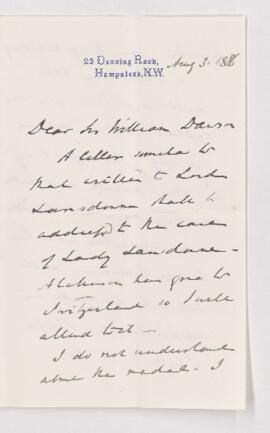 23 Denning Road,
Hampstead, N.W.
Aug 3. 1886
Dear Sir William Dawson
A letter similar to
that written to Lord
Lansdowne shall be
addressed to the care
of Lady Lansdowne -
Atchison has gone to
Switzerland so I will
attend to it -
I do not understand
about the medal - I